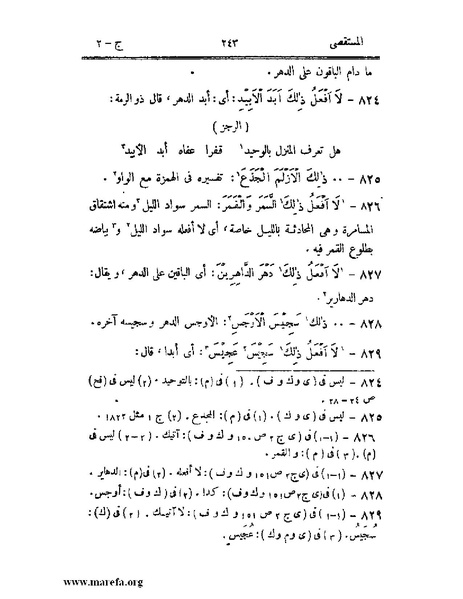 المستقصى ٢٤٣ ج - ٢
ما دام الباقون على الدهر .
٨٢٤ - لَا اَفْعَلُ ذٰلِكَ اَبَدَ الْاَبِيْدِ : أى : أبد الدهر ، قال ذو الرمة :
( الرجز )
هل تعرف المنزل بالوحيد¹ قفرا عفاه أبد الأبيد²
٨٢٥ - ٠٠ ذٰلِكَ الْاَزْلَمَ الْجَذَعَ¹ : تفسيره فى الهمزة مع الواو² .
٨٢٦ - ¹لَا اَفْعَلُ ذٰلِكَ¹ السَّمَرَ وَالْقَمَرَ : السمر سواد الليل ²ومنه اشتقاق
المسامرة وهى المحادثة بالليل خاصة ، أى لا أفعله سواد الليل² و³ بياضه
بطلوع القمر فيه .
٨٢٧ - ¹لَا اَفْعَلُ ذٰلِكَ¹ دَهْرَ الدَّاهِرِيْنَ : أى الباقين على الدهر ، و يقال :
دهر الدهارير² .
٨٢٨ - ٠٠ ذلك¹ سَجِيْسَ الْاَوْجَسِ² : الاوجس الدهر و سجيسه آخره .
٨٢٩ - ¹لَا اَفْعَلُ ذٰلِكَ¹ سَجِيْسَ² عَجِيْسَ³ : أى أبدا ، قال :
٨٢٤ - ليس فى ( ى و ك و ف ) . (١) فى (م) : بالتوحيد . (٢) ليس فى (فح)
ص ٢٤ - ٢٨ .
٨٢٥ - ليس فى ( ى و ك ) . (١) فى ( م ) : المجدع . (٢) ج ١ مثل ١٨٢٣ .
٨٢٦ - (١-١) فى ( ى ج ٢ ص ١٥٠ و ك و ف ) : آتيك . (٢ - ٢) ليس فى
(م) . (٣) فى ( م ) : و القمر .
٨٢٧ - (١-١) فى (ى ج ٢ ص ١٥١ و ك و ف) : لا أفعله . (٢) فى (م) : الدهاير .
٨٢٨ - (١) فى (ى ج ٢ ص ١٥١ و ك و ف) : كذا . (٢) فى (ك و ف) : أوجس .
٨٢٩ - (١-١) فى ( ى ج ٢ ص ١٥١ و ك و ف ) : لا آتيك . (٢) فى (ك) :
سُجَيْسَ . (٣) فى ( ى و م و ك ) : عُجَيْسَ .
www.marefa.org